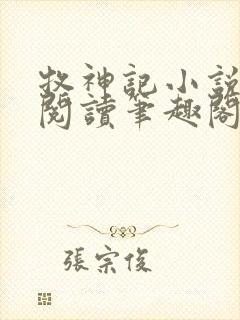 牧神記小說
閱讀筆趣閣
張宗俊